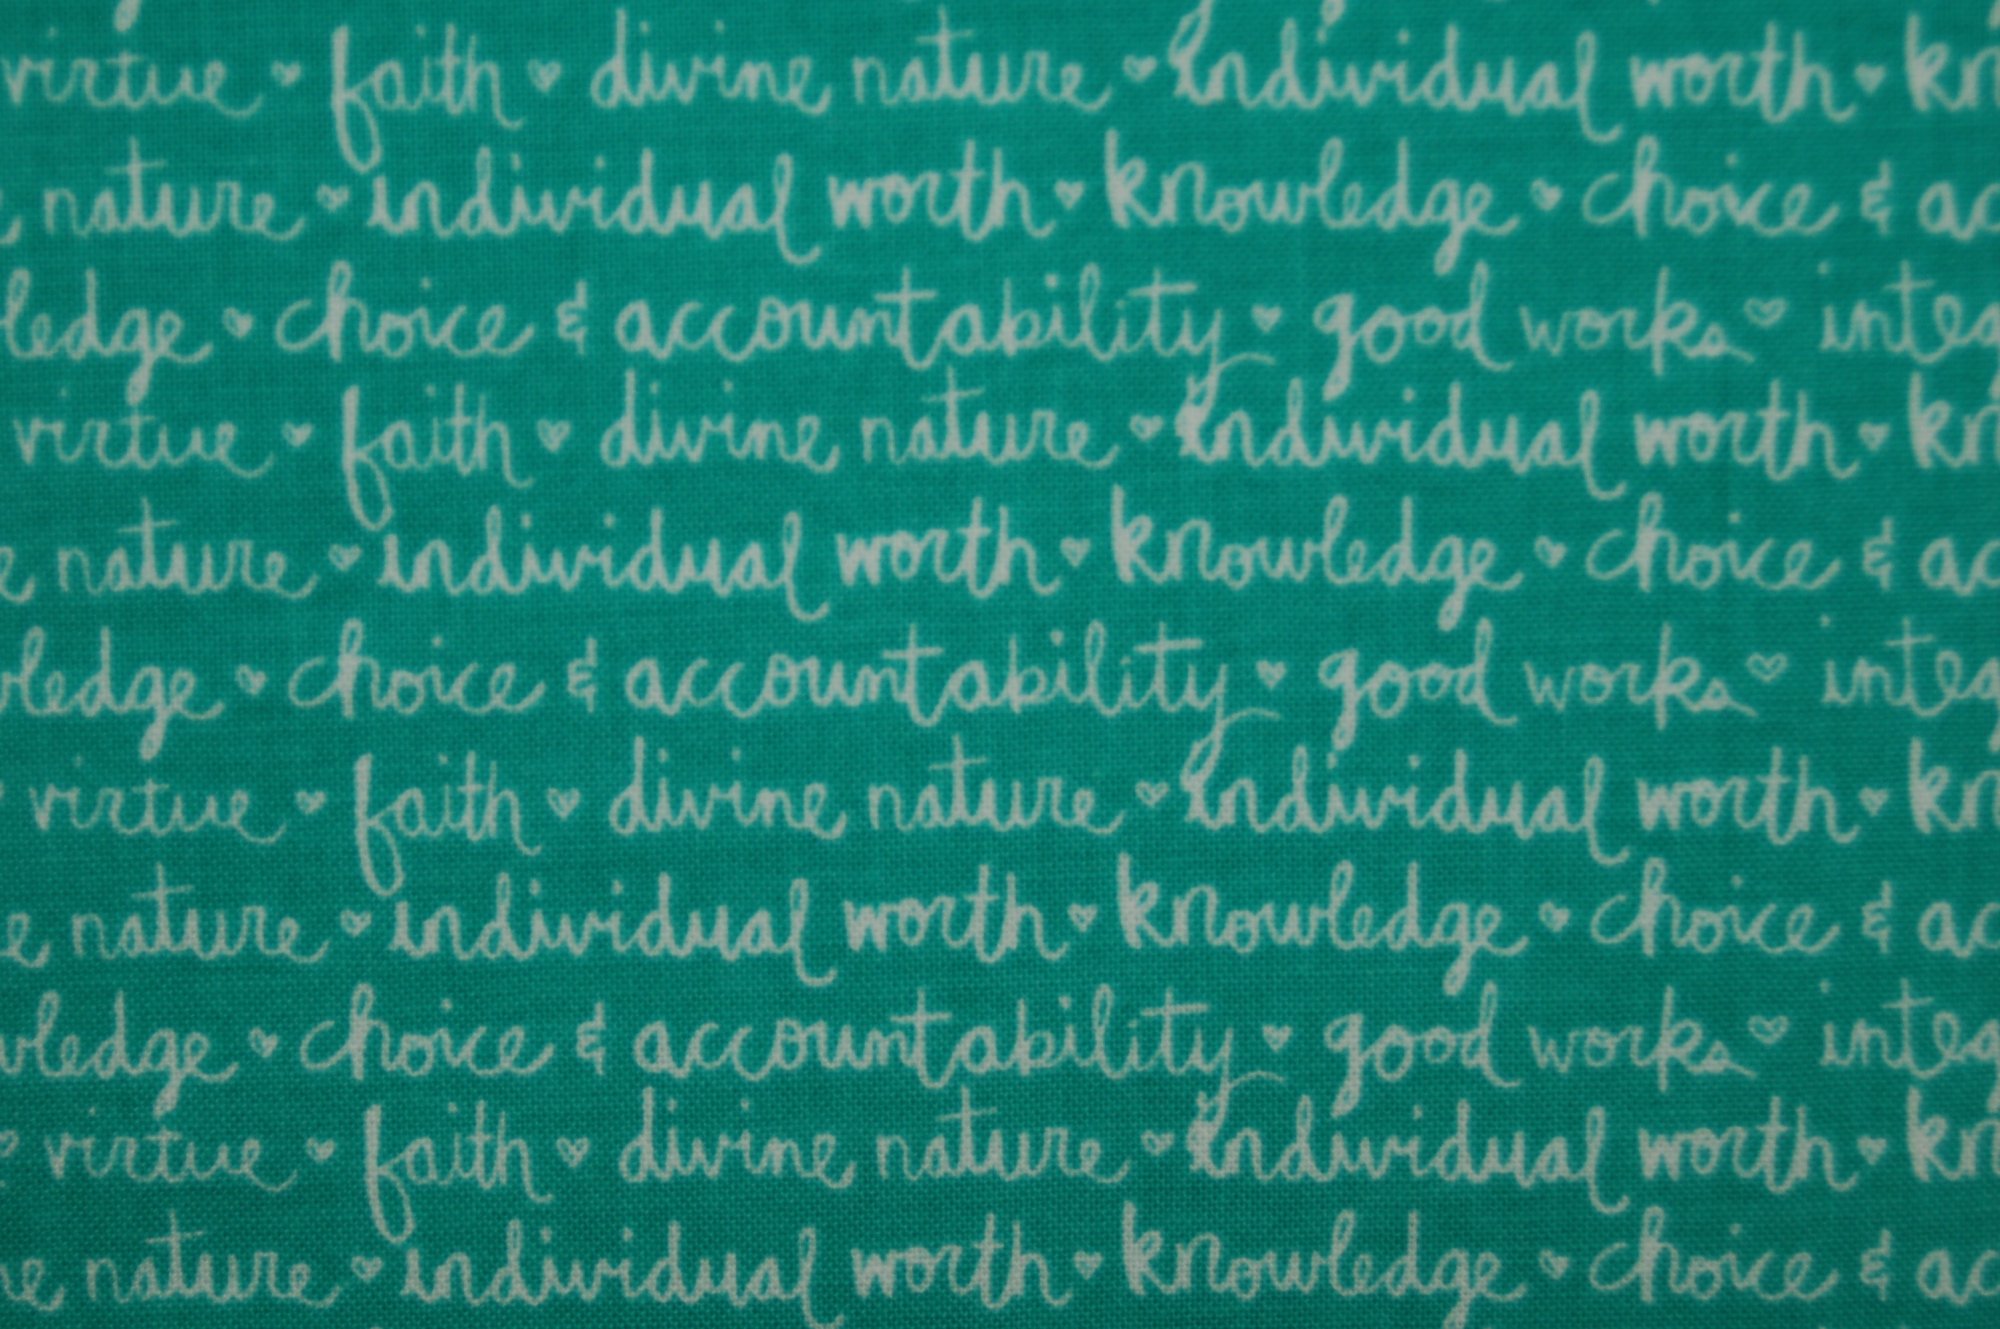 virtue ♥ faith ♥ divine nature ♥ individual worth ♥ kn
e nature ♥ individual worth ♥ knowledge ♥ choice & ac
ledge ♥ choice & accountability ♥ good works ♥ integ
virtue ♥ faith ♥ divine nature ♥ individual worth ♥ kn
e nature ♥ individual worth ♥ knowledge ♥ choice & ac
wledge ♥ choice & accountability ♥ good works ♥ integ
virtue ♥ faith ♥ divine nature ♥ individual worth ♥ kn
e nature ♥ individual worth ♥ knowledge ♥ choice & ac
wledge ♥ choice & accountability ♥ good works ♥ integ
♥ virtue ♥ faith ♥ divine nature ♥ individual worth ♥ kn
ne nature ♥ individual worth ♥ knowledge ♥ choice & ac